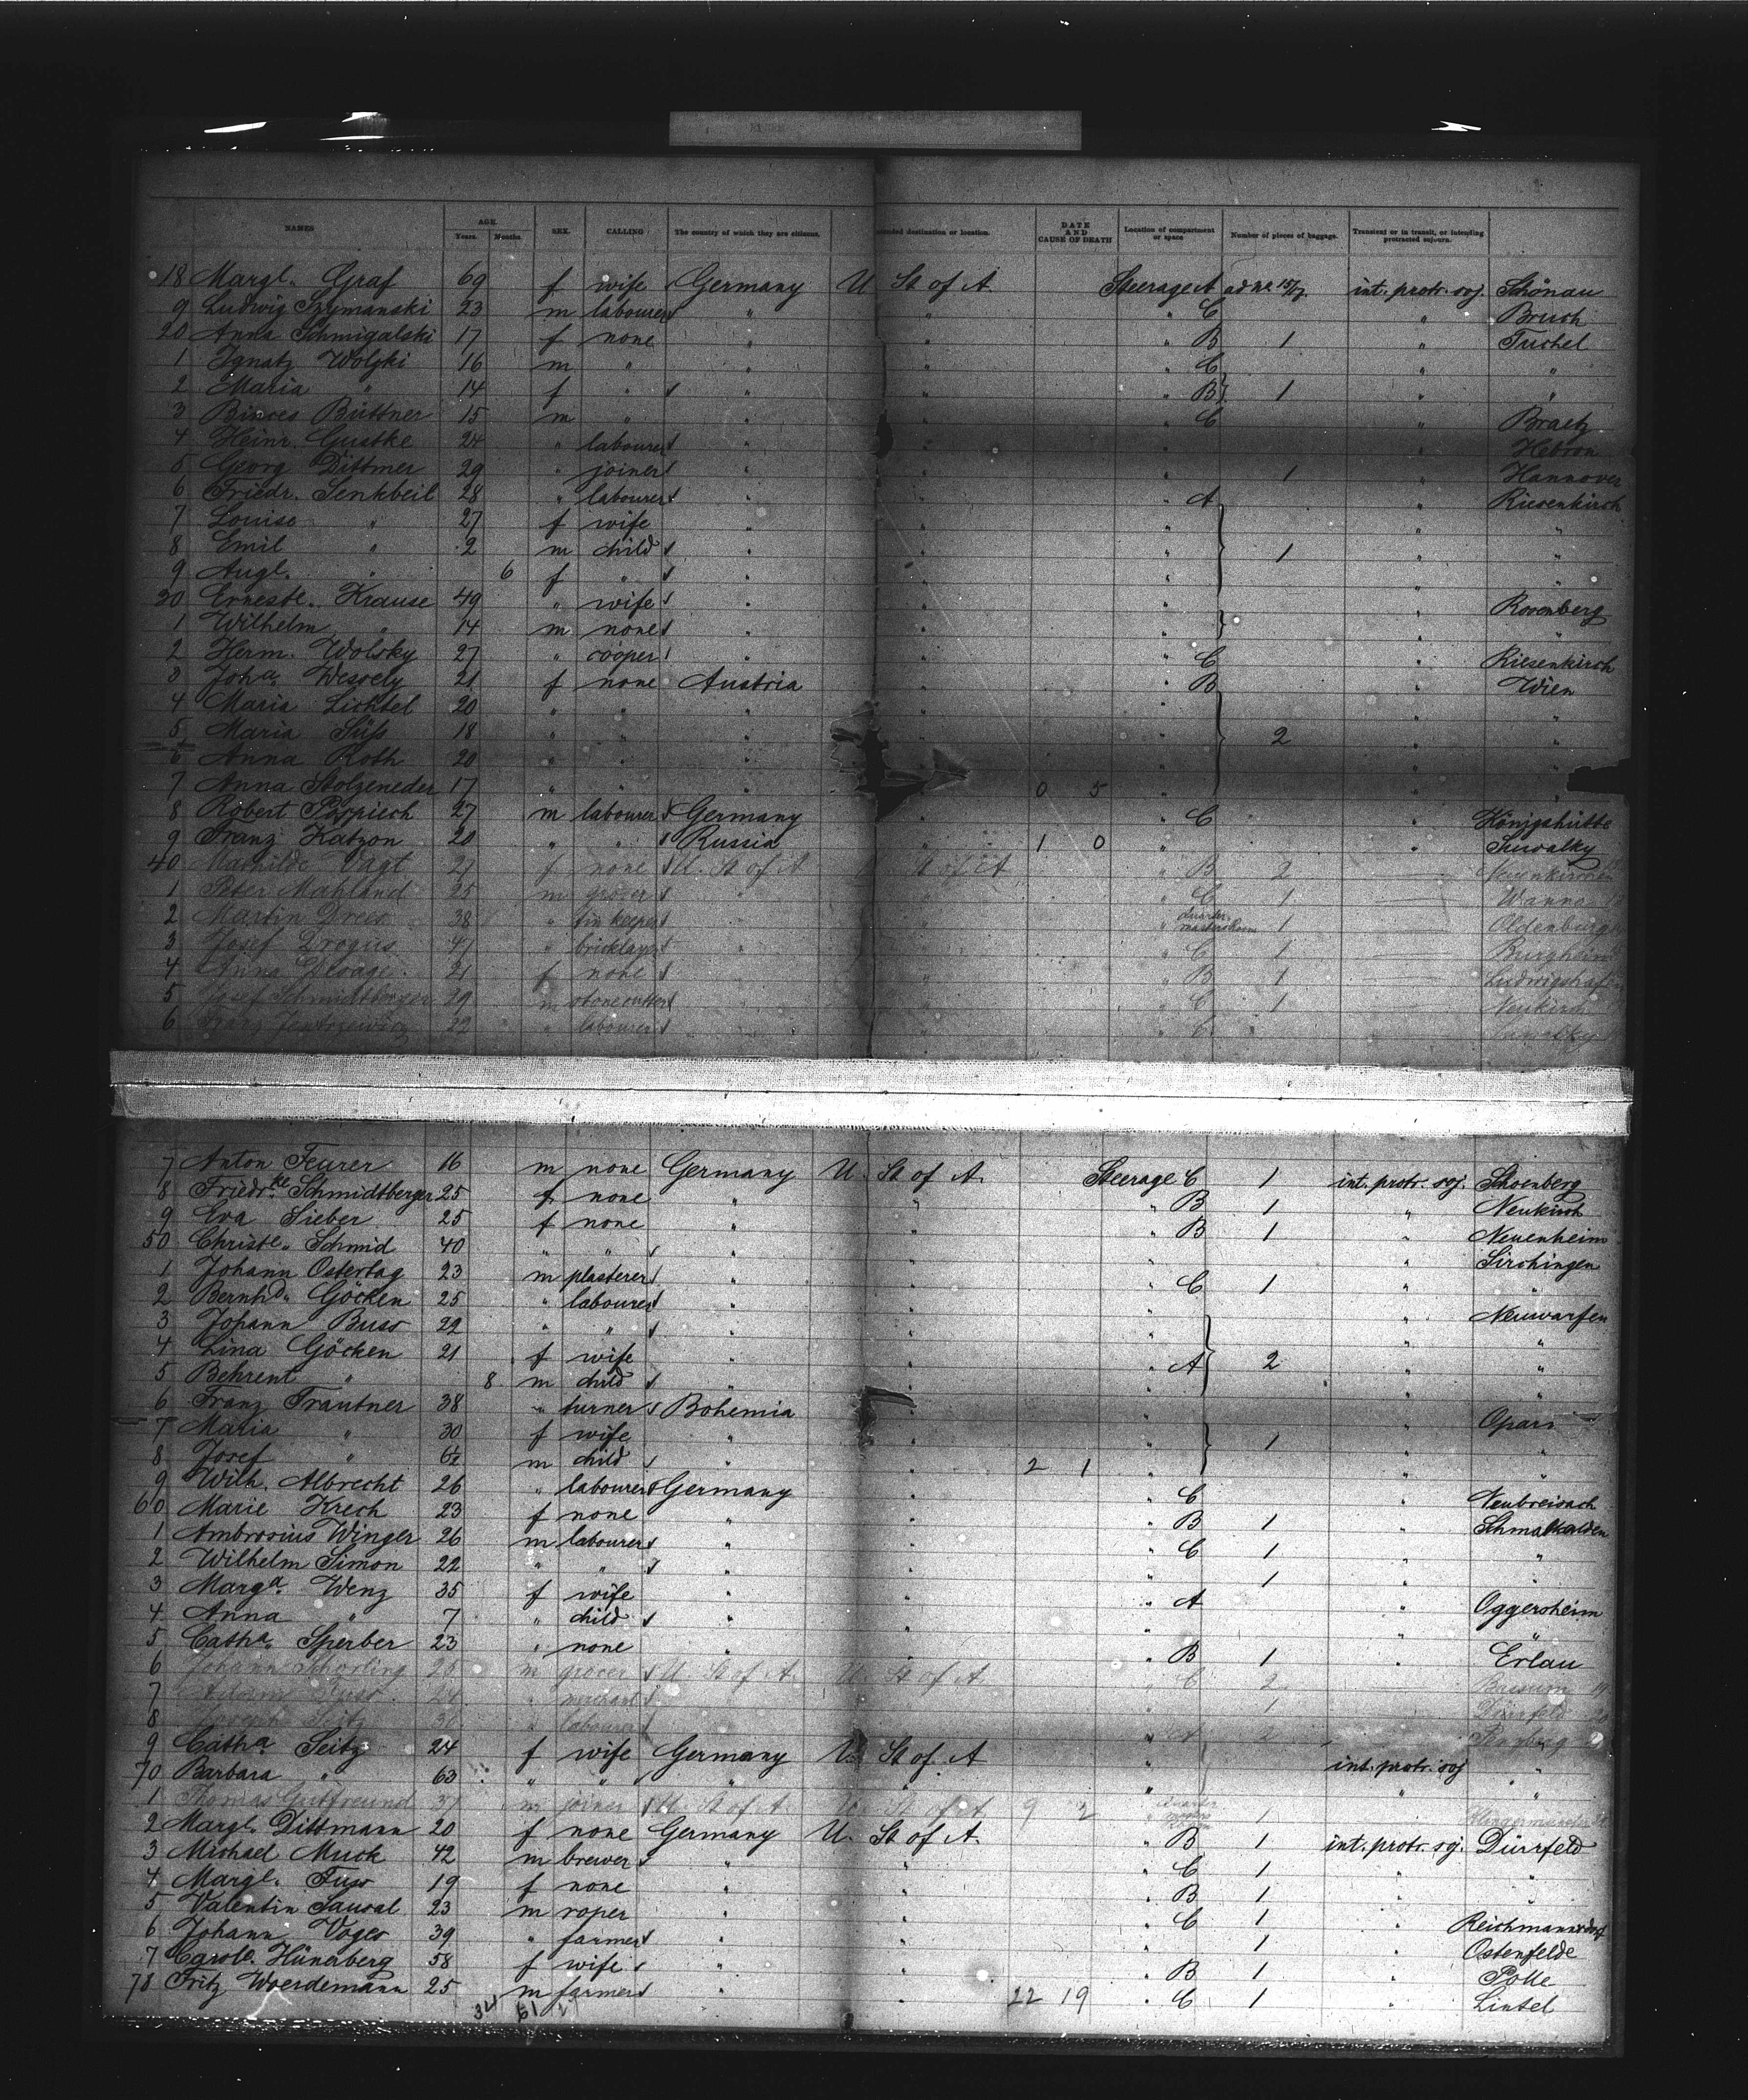 NAMES AGE. Years. Months. SEX. CALLING The country of which they are citizens. destination or location. DATE AND CAUSE OF DEATH Location of compartment or space Number of pieces of baggage. Transient or in transit, or intending protracted sojourn.
18 Margt. Graf 69 f wife Germany U. St of A. Steerage A ad nr 15/17. int. protr. soj. Schönau
9 Ludwig Szymanski 23 m labourer " " " C " Bruch
20 Anna Schmigalski 17 f none " " " B 1 " Tuchel
1 Ignatz Wolski 16 m " " " " C " "
2 Maria " 14 f " " " " B 1 " "
3 Büttner 15 m " " " " C " Braetz
4 Heinr. Gustke 24 " labourer " " Hebron
5 Georg Dittmer 29 " joiner " " 1 " Hannover
6 Friedr. Senkbeil 28 " labourer " " " A " Riesenkirch
7 Louise " 27 f wife " " " " "
8 Emil " 2 m child " " " 1 " "
9 Augl. " 6 f " " " " " "
30 Ernestl. Krause 49 " wife " " " " Rosenberg
1 Wilhelm " 14 m none " " " " "
2 Herm. Wolsky 27 " cooper " " " C " Riesenkirch
3 Joha. Wessely 21 f none Austria " " B " Wien
4 Maria Lichtel 20 " " " " " " "
5 Maria Süß 18 " " " " " 2 " "
6 Anna Roth 20 " " " " " " "
7 Anna Stolzeneder 17 " " " " 0 5 " " "
8 Robert Pospiech 27 m labourer Germany " " C " Königshütte
9 Franz Katzon 20 " " Russia " 1 0 " " Suwalky
40 Mathilde Vagt 27 f none U. St of A U. St of A " B 2 Neuenkirchen
1 Peter Mahland 25 m grocer " " " C 1 Wanna
2 Martin Drees 38 " " " " 1 Oldenburg
3 Josef Drogus 47 " bricklayer " " " C 1 Burgheim
4 Anna 21 f none " " " B 1 Ludwigshafen
5 Josef Schmidtberger 29 m stonecutter " " " C 1 Neukirch
6 Franz 29 " labourer " " " C Suwalky
7 Anton Feurer 16 m none Germany U. St of A. Steerage C 1 int. protr. soj. Schoenberg
8 Friedrke. Schmidtberger 25 f none " " " B 1 " Neukirch
9 Eva Sieber 25 f none " " " B 1 " Neuenheim
50 Christe. Schmid 40 " " " " " Sirchingen
1 Johann Ostertag 23 m plasterer " " " C 1 " "
2 Bernhd. Göcken 25 " labourer " " " " Neuwarfen
3 Johann Buss 22 " " " " " " "
4 Lina Göcken 21 f wife " " " A 2 " "
5 Behrent " 8 m child " " " "
6 Franz Trautner 38 " turner Bohemia " " "
7 Maria " 30 f wife " " " 1 " "
8 Josef " 6½ m child " " 2 1 " " "
9 Wilh. Albrecht 26 " labourer Germany " " C " Neubreisach
60 Marie Krech 23 f none " " " B 1 " Schmalkalden
1 Ambrosius Winger 26 m labourer " " " C 1 " "
2 Wilhelm Simon 22 " " " " " 1 " "
3 Marga. Wenz 35 f wife " " " A " Oggersheim
4 Anna " 7 " child " " " " "
5 Catha. Sperber 23 " none " " " B 1 " Erlau
6 Johann Schorling 26 m grocer U. St of A. U. St of A. " C 2 Bassum
7 24 " " " " 1 Dürrfeld
8 Joseph Seitz " labourer " " " 2
9 Catha. Seitz 24 f wife Germany U. St of A " int. protr. soj "
70 Barbara " 63 " " " " " " "
1 Thomas Gutfreund 37 m joiner U. St of A U. St of A 9 2 " 1
2 Margt. Dittmann 20 f none Germany U. St of A. " B 1 int. protr. soj. Dürrfeld
3 Michael Muck 42 m brewer " " " C 1 " "
4 Margt. Fuss 19 f none " " " B 1 " "
5 Valentin Sausal 23 m roper " " " C 1 " Reichmannsdorf
6 Johann Voges 39 " farmer " " " 1 " Ostenfelde
7 Carole. Hüneberg 58 f wife " " " B 1 " Polle
78 Fritz Woerdemann 25 m farmer " " 22 19 " C 1 " Lintel
34 61